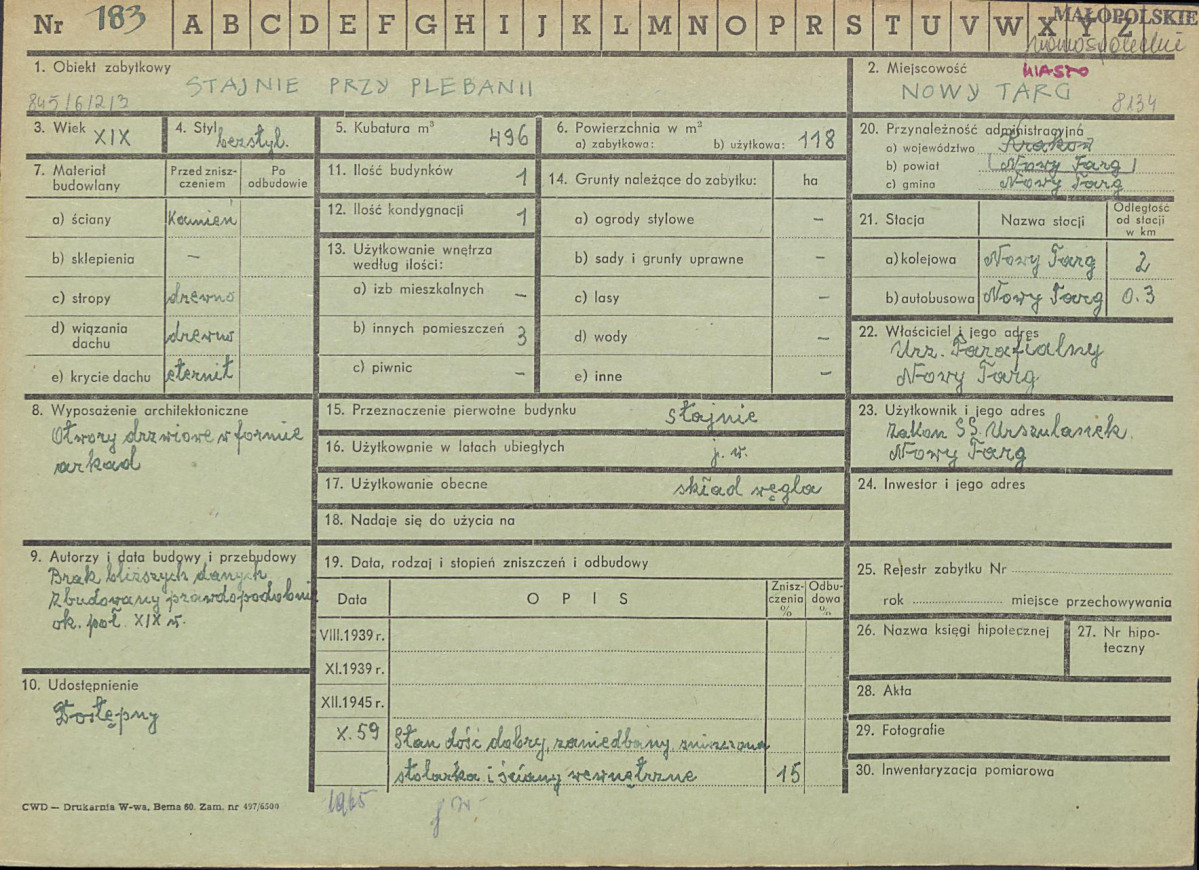 Nr 183 A B C D E F G H I J K L M N O P R S T U V W X Y Z
MAŁOPOLSKIE
1. Obiekt zabytkowy
STAJNIE PRZY PLEBANII
845/6/2/3
2. Miejscowość MIASTO
NOWY TARG 8134
3. Wiek XIX
4. Styl bezstyl.
5. Kubatura m³ 496
6. Powierzchnia w m³
a) zabytkowa: b) użytkowa: 118
7. Materiał budowlany
Przed zniszczeniem
Po odbudowie
a) ściany Kamień
b) sklepienia –
c) stropy drewno
d) wiązania dachu drewno
e) krycie dachu eternit
8. Wyposażenie architektoniczne
Otwory drzwiowe w formie
arkad
9. Autorzy i data budowy i przebudowy
Brak bliższych danych
Zbudowany prawdopodobnie
ok. poł. XIX w.
10. Udostępnienie
Dostępny
11. Ilość budynków 1
12. Ilość kondygnacji 1
13. Użytkowanie wnętrza
według ilości:
a) izb mieszkalnych –
b) innych pomieszczeń 3
c) piwnic –
14. Grunty należące do zabytku: ha
a) ogrody stylowe –
b) sady i grunty uprawne –
c) lasy –
d) wody –
e) inne –
15. Przeznaczenie pierwotne budynku stajnie
16. Użytkowanie w latach ubiegłych j. w.
17. Użytkowanie obecne skład węgla
18. Nadaje się do użycia na
19. Data, rodzaj i stopień zniszczeń i odbudowy
Data OPIS Zniszczenia % Odbudowa %
VIII.1939 r.
XI.1939 r.
XII.1945 r.
X.59 Stan dość dobry, zaniedbany, zniszczona
stolarka i ściany wewnętrzne 15
1965 j w.
20. Przynależność administracyjna
a) województwo Kraków
b) powiat (Nowy Targ)
c) gmina Nowy Targ
21. Stacja Nazwa stacji Odległość od stacji w km
a) kolejowa Nowy Targ 2
b) autobusowa Nowy Targ 0.3
22. Właściciel i jego adres
Urz. Parafialny
Nowy Targ
23. Użytkownik i jego adres
Zakon SS. Urszulanek
Nowy Targ
24. Inwestor i jego adres
25. Rejestr zabytku Nr
rok miejsce przechowywania
26. Nazwa księgi hipotecznej
27. Nr hipoteczny
28. Akta
29. Fotografie
30. Inwentaryzacja pomiarowa
CWD — Drukarnia W-wa, Bema 60. Zam. nr 497/6500